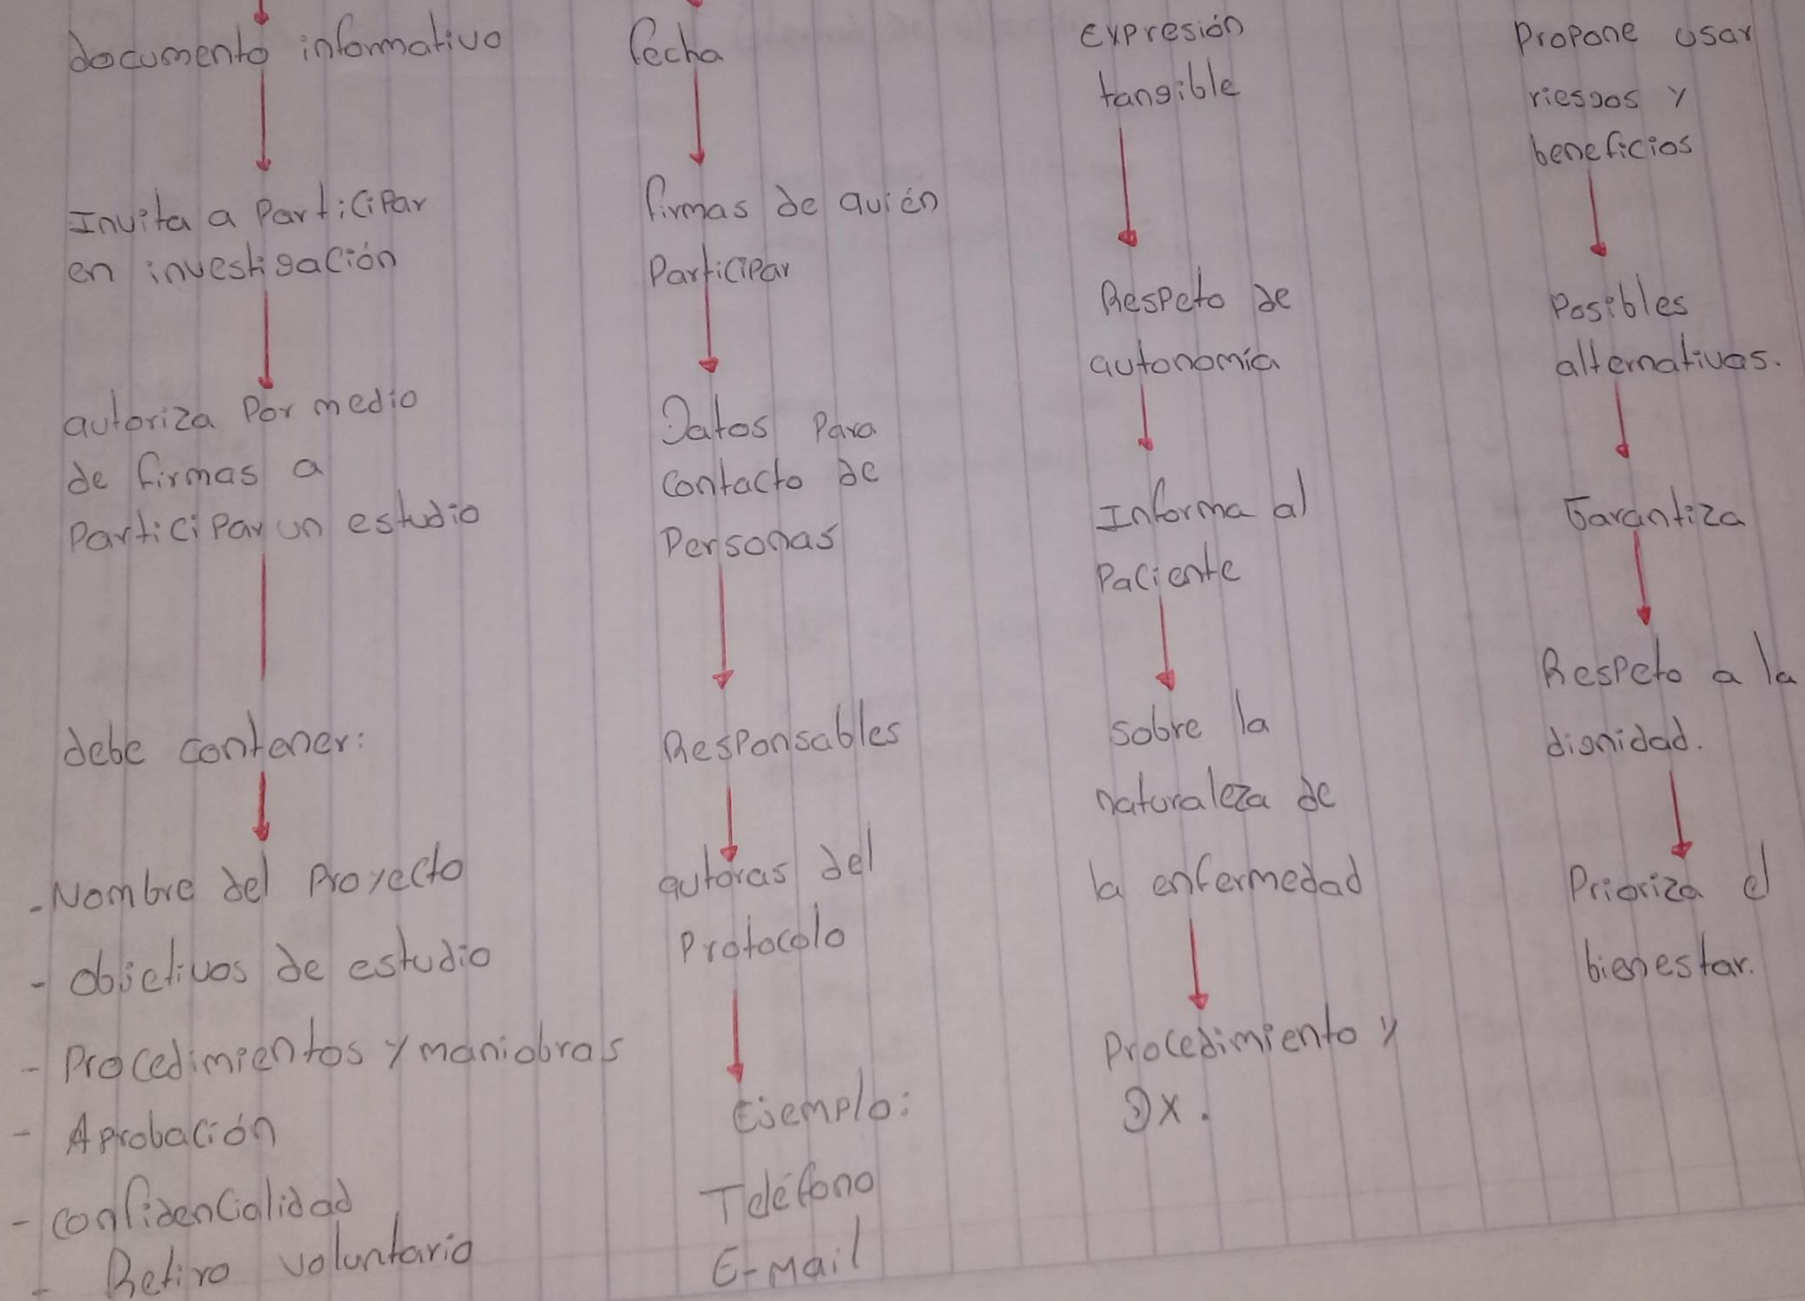 documento informativo
Invita a Participar
en investigación
autoriza Por medio
de firmas a
Participar un estudio
debe contener:
- Nombre del Proyecto
- objetivos de estudio
- Procedimientos y maniobras
- Aprobación
- confidencialidad
- Retiro voluntario
fecha
firmas de quién
Participar
Datos Para
contacto de
Personas
Responsables
autoras del
Protocolo
Ejemplo:
Teléfono
E-mail
expresión
tangible
Respeto de
autonomía
Informa al
Paciente
sobre la
naturaleza de
la enfermedad
Procedimiento y
DX.
Propone usar
riesgos y
beneficios
Posibles
alternativas.
Garantiza
Respeto a la
dignidad.
Prioriza el
bienestar.